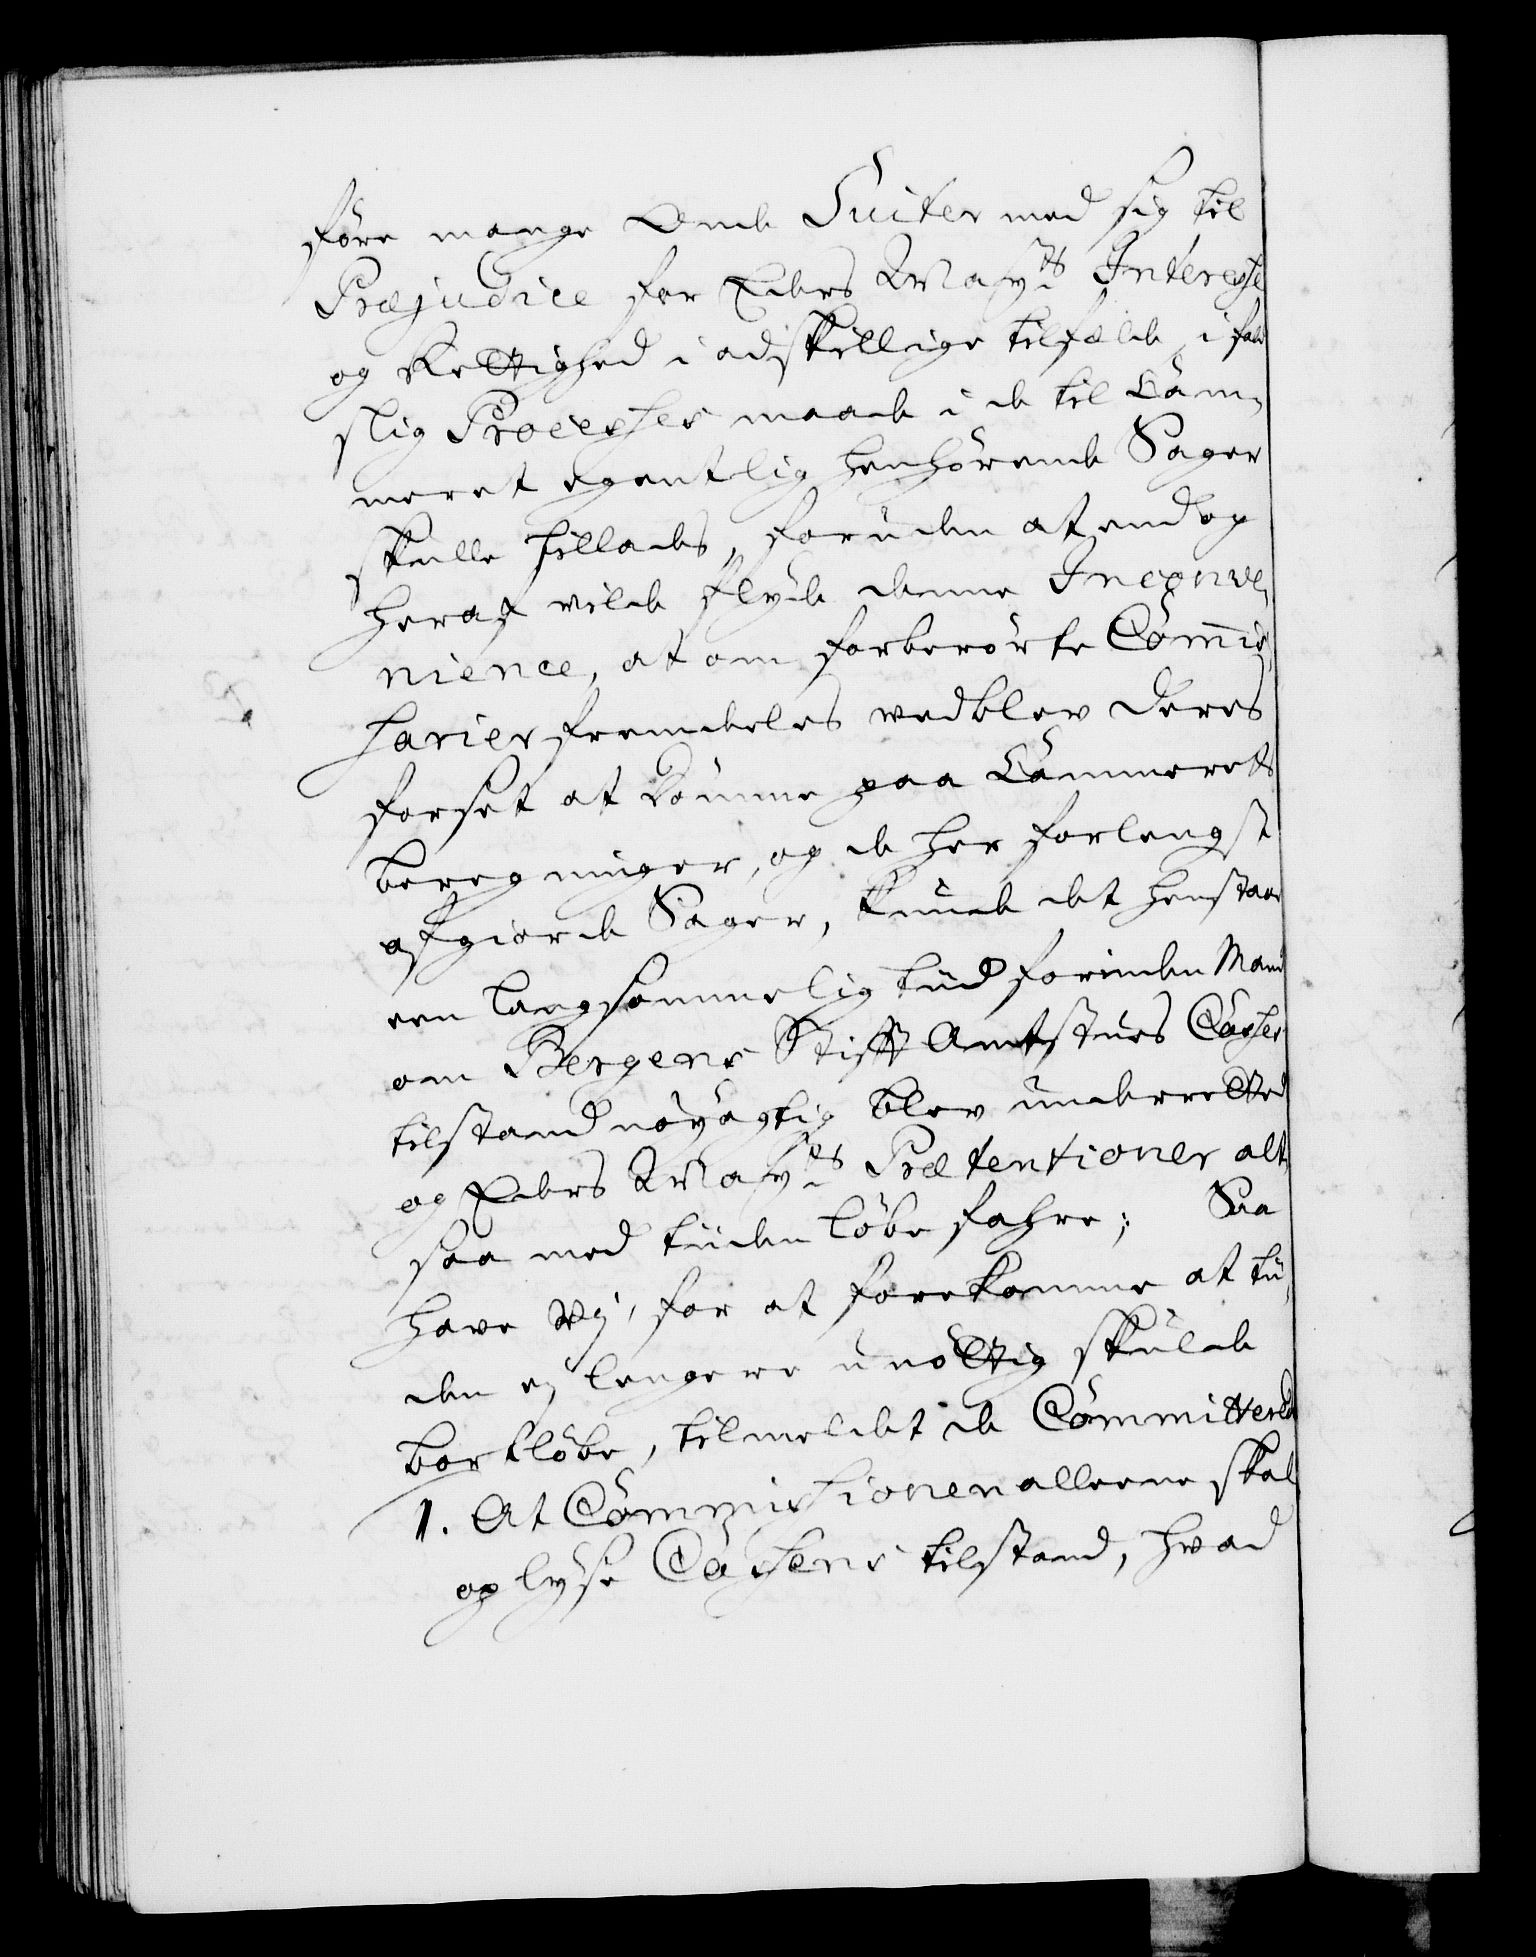 føre mange onde Suiter med sig til
Præjudice for Eders K May:ts Interesse
og Rettighed i adskillige tilfælde, ifald
slig Processer maade i de til Cam-
meret egentlig henhørende Sager
skulle tillades, foruden at endog
heraf vilde flyde denne Inconve-
nience, at om forberørte Commis-
sarier fremdeles vedblev deres
forset at dømme paa Cammerets
beregninger, og de her forlengst
afgiorde Sager, kunde det henstaae
een langsommelig tiid forinden Mand
om Bergens Stifft Amtstues Casses
tilstand nøyagtig blev underretted
og Eders K May:ts Prætentioner alt-
saa med tiiden løbe fahre; Saa
have vj, for at forekomme at tii-
den ej lengere unøttig skulde
bortløbe, tilmeldet de Committerede
1. At Commissionen alleene skal
oplyse Cassens tilstand, hvad